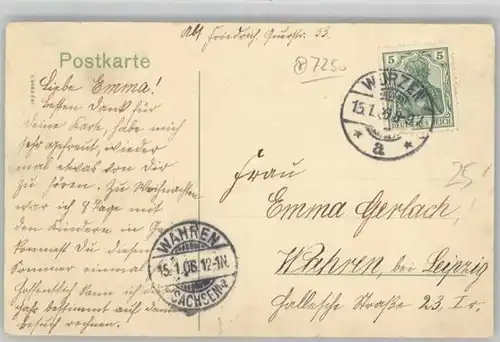 Abs Friedrich Querstr. 33.
Postkarte
Liebe Emma!
Besten Dank für
deine Karte, habe mich
sehr gefreut, wieder
mal etwas von Dir
zu hören. Zu Weihnachten
war ich 8 Tage mit
den Kindern in
Kommst Du diesen
Sommer einmal
hoffentlich kann ich
Jahr bestimmt auf
Besuch rechnen.
7250
5 5
WURZEN
15.1.06
a
25
Frau
Emma Gerlach,
Wahren, bei Leipzig
Hallesche Straße 23, I r.
WAHREN
15.1.06.12-1N.
(SACHSEN)